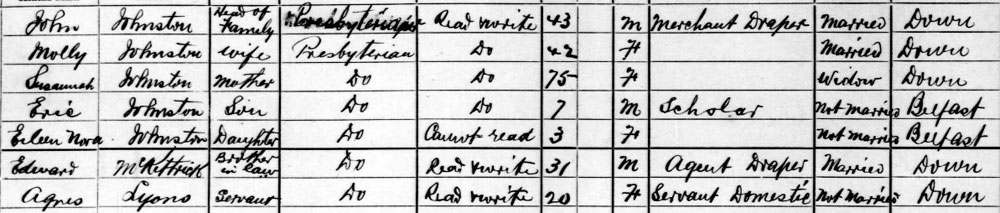 John Johnston Head of Family Presbyterian Read & write 43 M Merchant Draper Married Down
Molly Johnston wife Presbyterian Do 42 F Married Down
Susannah Johnston Mother Do Do 75 F Widow Down
Eric Johnston Son Do Do 7 M Scholar Not married Belfast
Eileen Nora Johnston Daughter Do Cannot read 3 F Not married Belfast
Edward McKittrick Brother in law Do Read & write 31 M Agent Draper Married Down
Agnes Lyons Servant Do Read & write 20 F Servant Domestic Not Married Down